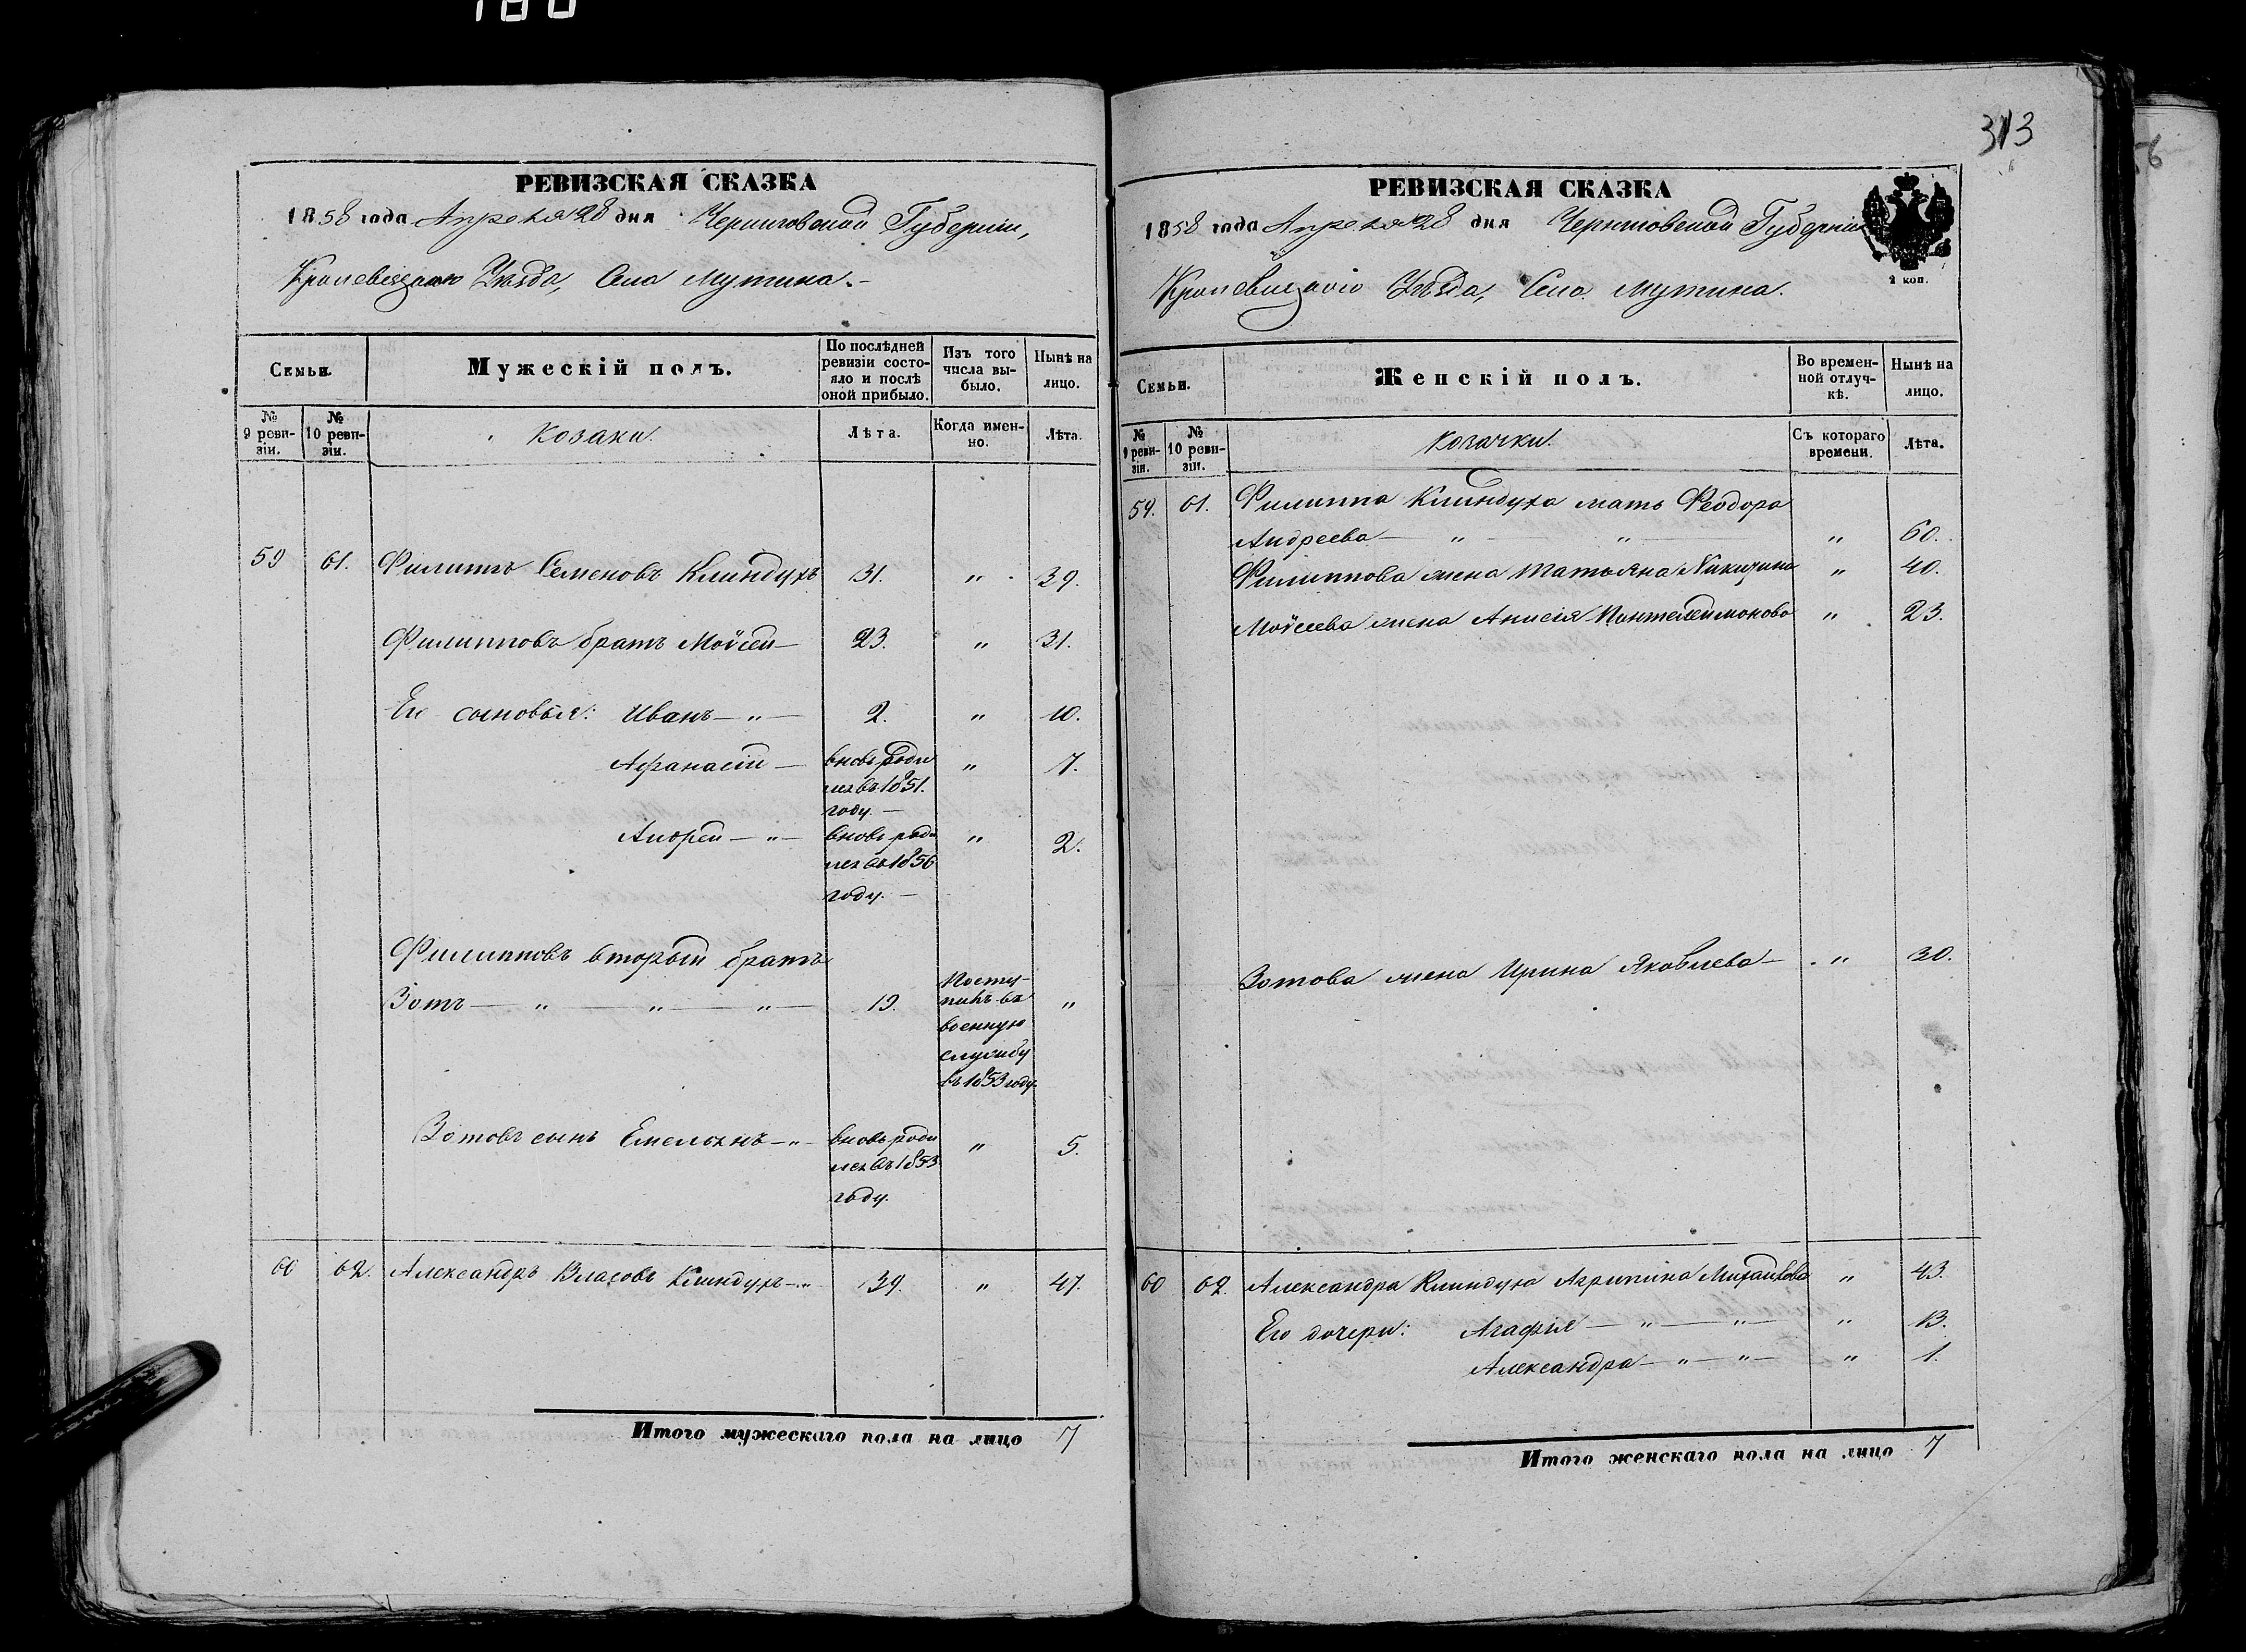 180
РЕВИЗСКАЯ СКАЗКА
1858 года Апреля 28 дня Черниговской Губернии,
Кролевецкаго Уезда, Села Мутина.-
Семьи.
Мужескій полъ.
По послѣдней ревизіи состояло и послѣ оной прибыло.
Изъ того числа выбыло.
Нынѣ на лицо.
№ 9 ревизіи.
№ 10 ревизіи.
Козаки.
Лѣта.
Когда именно.
Лѣта.
59 61. Филиппъ Семеновъ Клиндухъ 31. " 39.
Филипповъ братъ Мойсей — 23. " 31.
Его сыновья: Иванъ — " — 2. " 10.
Афанасій — вновь роди " 7.
лся въ 1851.
году. —
Андрей — " — вновь роди " 2.
лся въ 1856
году. —
Филипповъ вторый братъ
Зотъ — " — " — " — 19. Посту- "
пилъ въ
военную
службу
въ 1853 году.
Зотовъ сынъ Емельянъ — " — вновь роди " 5.
лся въ 1853
году.
60 62. Александръ Власовъ Клиндухъ — " 39. " 47.
Итого мужескаго пола на лицо 7
313
РЕВИЗСКАЯ СКАЗКА
1858 года Апреля 28 дня Черниговской Губерніи
Кролевецкаго Уѣзда, Села Мутина.
2 коп.
Семьи.
Женскій полъ.
Во временной отлучкѣ.
Нынѣ на лицо.
№ 9 ревизіи.
№ 10 ревизіи.
Козачки.
Съ котораго времени.
Лѣта.
59. 61. Филиппа Клиндуха мать Феодора
Андреева — " — " — " 60.
Филиппова жена Татьяна Никитина " 40.
Мойсеева жена Анисія Пантелеймонова " 23.
Зотова жена Ирина Яковлева — " 30.
60 62. Александра Клиндуха Агрипина Михайлова " 43.
Его дочери: Агафія — " — " — " 13.
Александра — " — " — " 1.
Итого женскаго пола на лицо 7